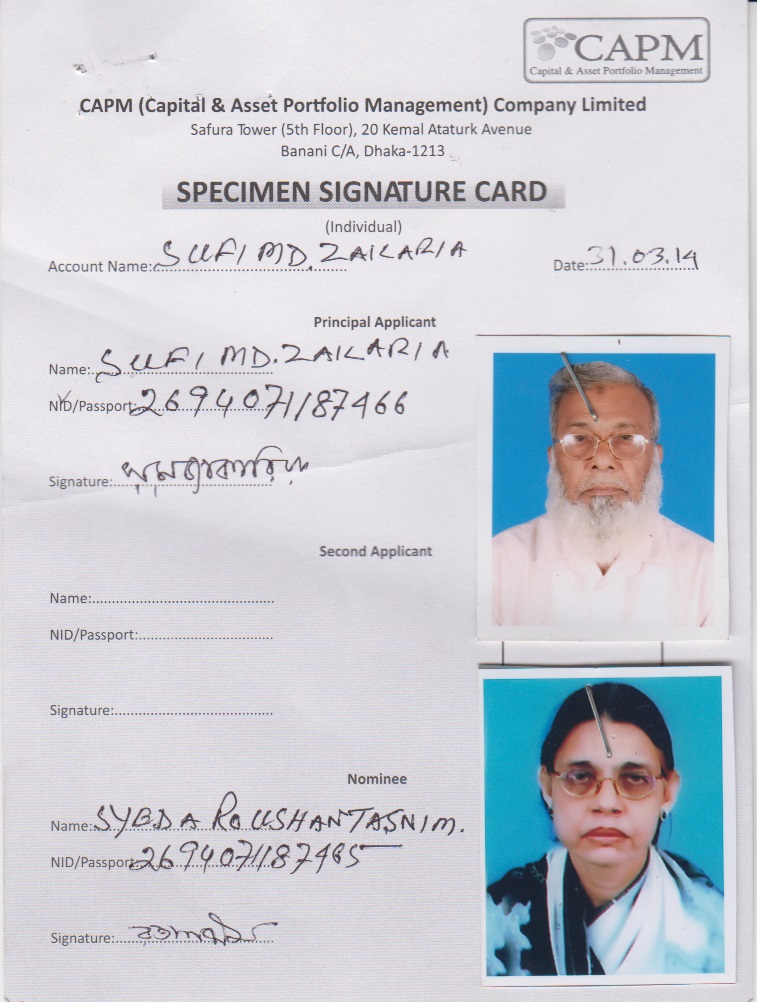 CAPM
Capital & Asset Portfolio Management
CAPM (Capital & Asset Portfolio Management) Company Limited
Safura Tower (5th Floor), 20 Kemal Ataturk Avenue
Banani C/A, Dhaka-1213
SPECIMEN SIGNATURE CARD
(Individual)
Account Name: SUFI MD. ZAKARIA Date: 31.03.14
Principal Applicant
Name: SUFI MD. ZAKARIA
NID/Passport: 2694071187466
Signature:
Second Applicant
Name:
NID/Passport:
Signature:
Nominee
Name: SYEDA ROUSHAN TASNIM.
NID/Passport: 2694071187465
Signature: